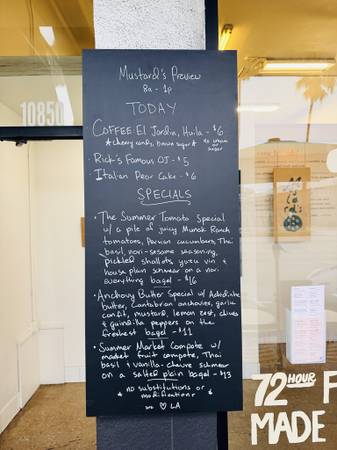 10850
Mustard's Preview
8a - 1p
TODAY
COFFEE El Jardin, Huila - $6
* cherry candy, brown sugar *
no cream
sugar
Rick's Famous OJ - $5
Italian Pear Cake - $6
SPECIALS
• The Summer Tomato Special
w/ a pile of juicy Munak Ranch
tomatoes, Persian cucumbers, Thai
basil, nori-sesame seasoning,
pickled shallots, yuzu vin &
house plain schmear on a nori
everything bagel - $16
• Anchovy Butter Special w/
butter, cantabrian anchovies, garlic
confit, mustard, lemon zest, chives
& guindilla peppers on the
freshest bagel - $11
• Summer Market Compote w/
market fruit compote, Thai
basil & vanilla-chevre schmear
on a salted plain bagel - $13
* no substitutions or
modifications *
we ♡ LA
72 HOUR F
MADE